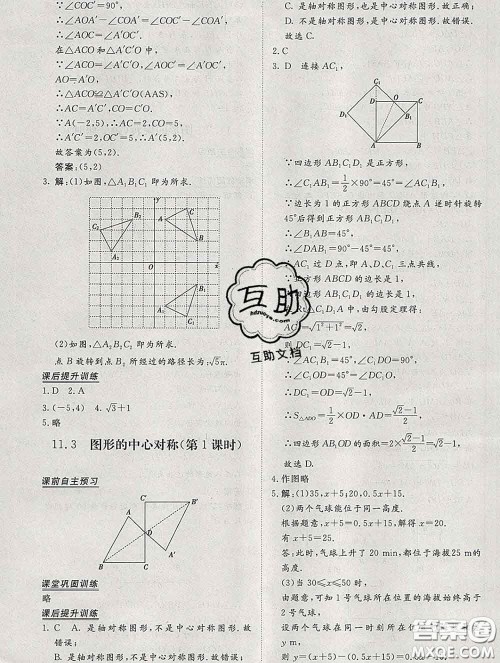 ∵∠COC′=90°，
∴∠AOA′－∠COA′=∠COC′－∠COA′，
∴∠AOC=∠A′OC′.
在△ACO和△A′C′O中，
∠ACO=∠A′C′O
∠AOC=∠A′OC′，
AO=A′O
∴△ACO≌△A′C′O(AAS)，
∴AC=A′C′，CO=C′O.
∵A(－2，5)，∴AC=2，CO=5，
∴A′C′=2，OC′=5，∴A′(5，2).
故答案为(5，2).
答案：(5，2)
3.解：(1)如图，△A₁B₁C₁即为所求.
y
C₂
B₂
A₂
A
C
B
O
x
A₁
B₁
C₁
(2)如图，△A₂B₂C₂即为所求.
点B旋转到点B₂所经过的路径长为：√5π.
课后提升训练
1.D 2.A
3.(－5，4) 4.√3+1
5.略
11.3 图形的中心对称(第1课时)
课前自主预习
C′
B′
A
D
B
C
A′
课堂巩固训练
略
课后提升训练
1.C A.是轴对称图形，不是中心对称图形.故错误.
B.是轴对称图形，不是中心对称图形.故错误；
C.是轴对称图形，也是中心对称图形.故正确；
D.不是轴对称图形，是中心对称图形.故错误.
故选C.
2.C
3.D 连接AC₁，
C₁
D
O
C
D₁
B₁
A
B
∵四边形AB₁C₁D₁是正方形，
∴∠C₁AB₁=1/2×90°=45°=∠AC₁B₁，
∵边长为1的正方形ABCD绕点A逆时针旋转
45°后得到正方形AB₁C₁D₁，
∴∠B₁AB=45°，
∴∠DAB₁=90°－45°=45°，
∴AC₁过D点，即A、D、C₁三点共线，
∵正方形ABCD的边长是1，
∴四边形AB₁C₁D₁的边长是1，
在Rt△C₁D₁A中，由勾股定理得：
AC₁=√1²+1²=√2，
则DC₁=√2－1，
∵∠AC₁B₁=45°，∠C₁DO=90°，
∴∠C₁OD=45°=∠DC₁O，
∴DC₁=OD=√2－1，
∴S△ADO=1/2×OD·AD=(√2－1)/2，
∴四边形AB₁OD的面积是=2×(√2－1)/2=√2－1，
故选：D.
4.作图略
5.解：(1)35，x+5；20，0.5x+15.
(2)两个气球能位于同一高度.
根据题意，x+5=0.5x+15，解得x=20，
有x+5=25.
答：此时，气球上升了20 min，都位于海拔25 m的
高度.
(3)当30≤x≤50时，
由题意，可知1号气球所在位置的海拔始终高于
2号气球，
设两个气球在同一时刻所在位置的海拔相差
y m，
则y=(x+5)－(0.5x+15)=0.5x－10.
互助
Hdzuoye.com
互助文档
答案圈
MXQE.COM